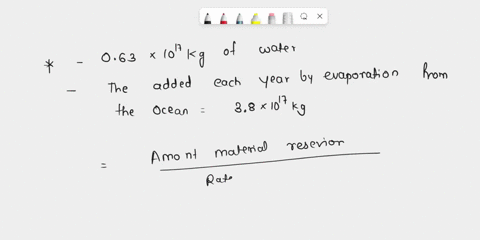 * - 0.63 × 10¹⁷ kg of water
- The added each year by evaporation from
the Ocean = 3.8 × 10¹⁷ kg
= Amont material resevior
Rate